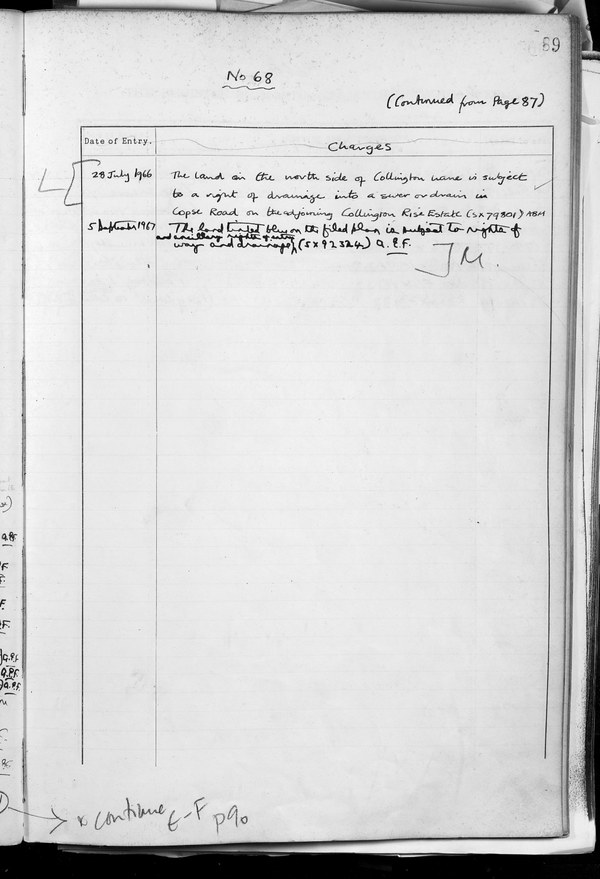 89
No 68
(Continued from Page 87)
Date of Entry.
Charges
28 July 1966
The land on the north side of Collington Lane is subject
to a right of drainage into a sewer or drain in
Copse Road on the adjoining Collington Rise Estate (SX79801) ABM
5 September 1967
The land tinted blue on the filed plan is subject to rights of
and ancillary rights of entry
way and drainage, (SX92324) A.P.F.
JM.
A.P.F.
A.P.F.
A.P.F.
x continue E-F p90